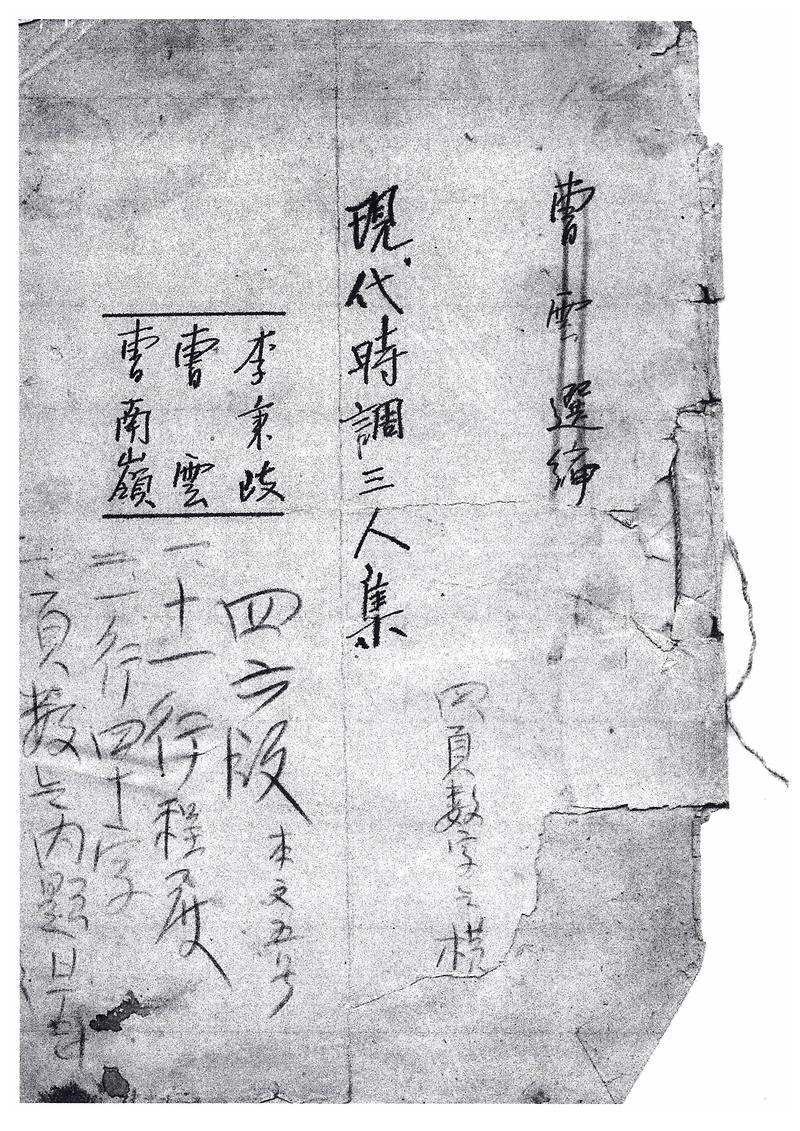 曹雲選編
四頁數字는橫
現代時調三人集
李秉岐
曺雲
曺南嶺
四六版 本文五号
一、十一行程度
二、一行四十字
頁數는內題부터